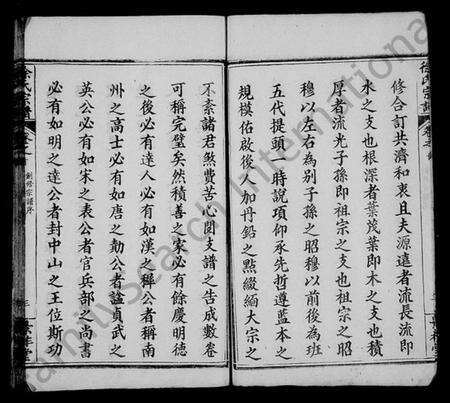 徐氏宗譜
修合訂共濟和衷且夫源遠者流長流即
水之支也根深者葉茂葉即木之支也積
厚者流光子孫即祖宗之支也祖宗之昭
穆以左右為別子孫之昭穆以前後為班
五代提頭一時說項仰承先哲遵藍本之
規模佑啟後人加丹鉛之點綴緬大宗之
不紊諸君煞費苦心閱支譜之告成數卷
可稱完璧矣然積善之家必有餘慶明德
之後必有達人必有如漢之稺公者稱南
州之高士必有如唐之勣公者諡貞武之
英公必有如宋之表公者官兵部之尚書
必有如明之達公者封中山之王位斯功
徐氏宗譜
創修宗譜序
familysearch International